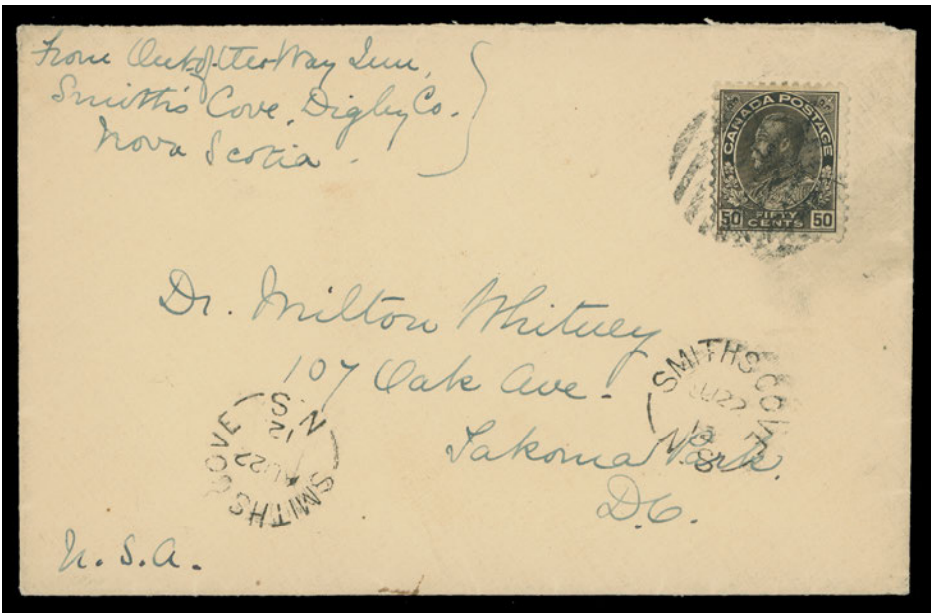 From Out of the Way Inn,
Smith's Cove, Digby Co.
Nova Scotia.
CANADA POSTAGE
50 FIFTY CENTS 50
Dr. Milton Whitney
107 Oak Ave.
Takoma Park.
D.C.
U.S.A.
SMITHS COVE
AU 22
12
N.S
SMITHS COVE
AU 22
12
N.S